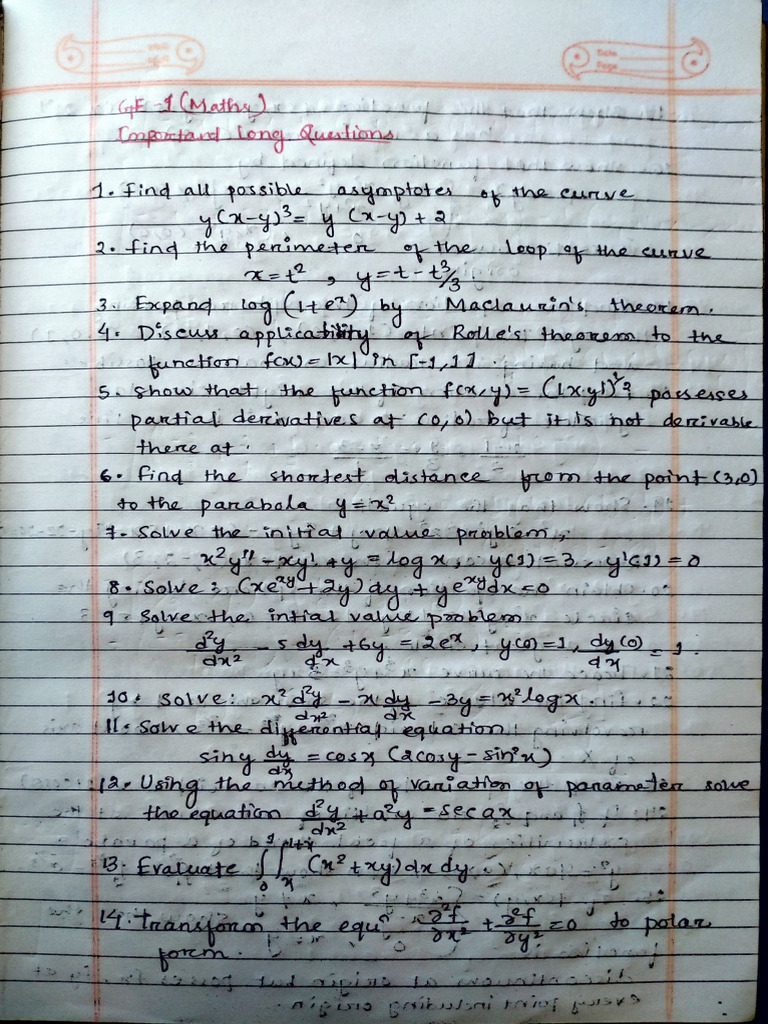 Date
Page
GE-1 (Maths)
Important Long Questions
1. Find all possible asymptotes of the curve
y(x-y)³ = y (x-y) + 2
2. find the perimeter of the loop of the curve
x = t², y = t - t³/3
3. Expand log (1+eˣ) by Maclaurin's theorem.
4. Discuss applicability of Rolle's theorem to the
function f(x) = |x| in [-1,1]
5. Show that the function f(x,y) = (|x·y|)^½ possesses
partial derivatives at (0,0) but it is not derivable
there at.
6. Find the shortest distance from the point (3,0)
to the parabola y = x²
7. Solve the initial value problem,
x²y'' - xy' + y = log x, y(1) = 3, y'(1) = 0
8. Solve: (xe^xy + 2y) dy + ye^xy dx = 0
9. Solve the intial value problem
d²y/dx² - 5 dy/dx + 6y = 2eˣ, y(0) = 1, dy(0)/dx = 1.
10. Solve: x² d²y/dx² - x dy/dx - 3y = x² log x.
11. Solve the differential equation
siny dy/dx = cosx (2cosy - sin²x)
12. Using the method of variation of parameter solve
the equation d²y/dx² + a²y = sec ax
13. Evaluate ∫₀¹ ∫ₓ^(1+x) (x² + xy) dx dy.
14. Transform the equⁿ ∂²f/∂x² + ∂²f/∂y² = 0 to polar
form.